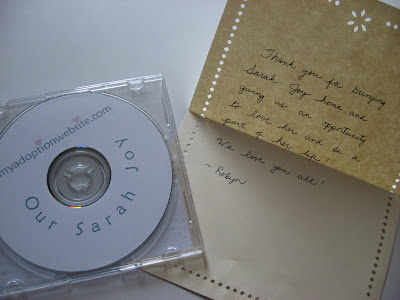 myadoptionwebsite.com
Our Sarah Joy
Thank you for bringing
Sarah Joy home and
giving us an opportunity
to love her and be a
part of her life!
We love you all!
~ Robyn